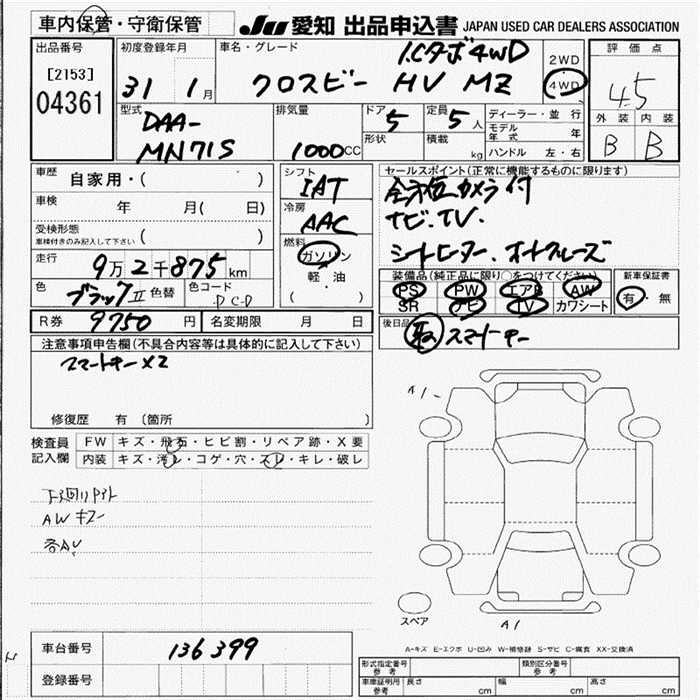 車内保管・守衛保管
JU 愛知 出品申込書 JAPAN USED CAR DEALERS ASSOCIATION
出品番号
[2153]
04361
初度登録年月
31 1月
車名・グレード
I.Cターボ4WD
クロスビー HV MZ
2WD
4WD
評価点
4.5
外装 内装
B B
型式
DAA-
MN71S
排気量
1000CC
ドア 5
形状
定員 5人
積載 kg
ディーラー・並行
モデル年式 年
ハンドル 左・右
車歴 自家用・( )
車検 年 月( 日)
受検形態
車検付きのみ記入して下さい ( )
走行 9万2千875km
色 ブラックII 色替
色コード
シフト
IAT
冷房
AAC
燃料
ガソリン
軽・油
( )
セールスポイント(正常に機能するものに限ります)
全方位カメラ付
ナビ.TV.
シートヒーター.オートクルーズ
装備品(純正品に限り○をつけてください)
PS PW エアB AW
SR ナビ TV カワシート
新車保証書
有・無
後日品 取 スマートキー
R券 9750円 名変期限 月 日
注意事項申告欄(不具合内容等は具体的に記入して下さい)
スマートキーX2
修復歴 有 (箇所 )
検査員
記入欄
FW キズ・飛石・ヒビ割・リペア跡・X要
内装 キズ・汚レ・コゲ・穴・スレ・キレ・破レ
下廻り
AWキズ
A1
スペア
A1
A-キズ E-エクボ U-凹み W-補修跡 S-サビ C-腐食 XX-交換済
車台番号 136399
登録番号
形式指定番号 参考
類別区分番号 参考
車庫証明用 参考 長さ cm 幅 cm 高さ cm